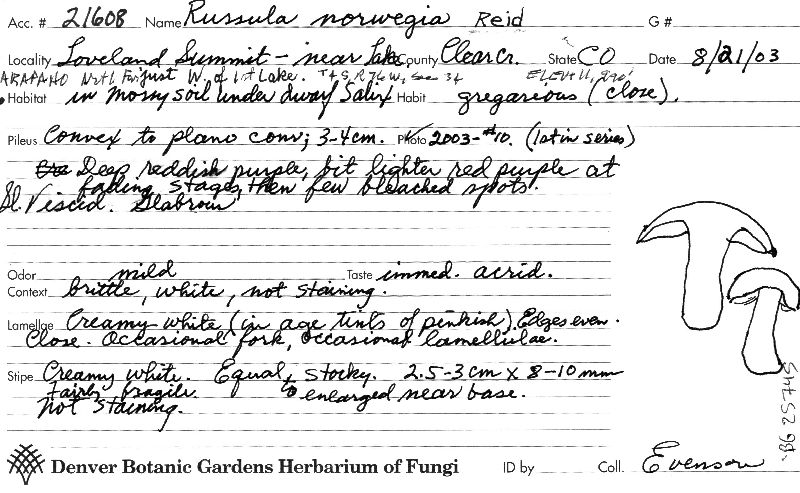 Acc. # 21608 Name Russula norwegia Reid G #
Locality Loveland Summit - near Lake, County Clear Cr. State CO Date 8/21/03
ARAPAHO Natl For just W. of 1st Lake. T4S, R76W, Sec 34 ELEV 11,
Habitat in mossy soil under dwarf Salix Habit gregarious (close).
Pileus Convex to plano conv; 3-4cm. Photo 2003-#10. (1st in series)
Deep reddish purple, bit lighter red purple at
fading stages, then few bleached spots.
Sl. Viscid. Glabrous
Odor mild Taste immed. acrid.
Context brittle, white, not staining.
Lamellae Creamy-white (in age tints of pinkish). Edges even.
Close. Occasional fork, occasional lamellulae.
Stipe Creamy white. Equal, stocky. 2.5-3cm x 8-10mm
Fairly fragile. to enlarged near base.
Not staining.
Denver Botanic Gardens Herbarium of Fungi ID by Coll. Evenson